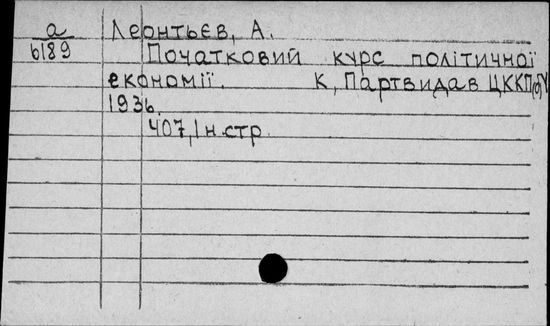 а
6189
Леонтьєв, А.
Початковий курс політичної
економії. К, Партвидав ЦККП(б)У
1936.
407, 1 н. стр.